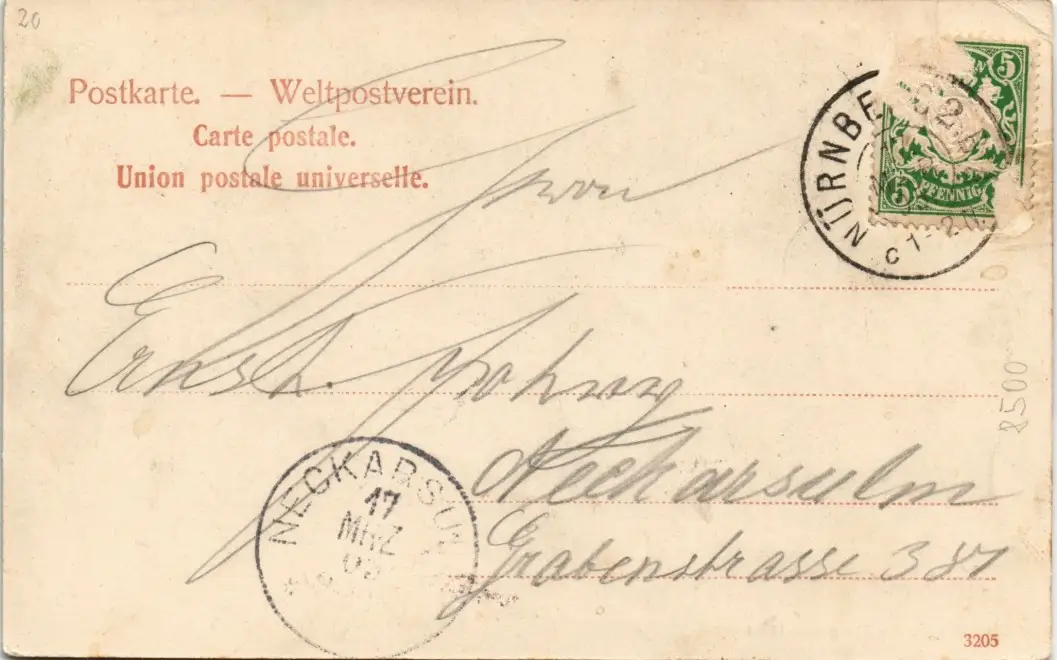 20
Postkarte. — Weltpostverein.
Carte postale.
Union postale universelle.
NÜRNBE 2.
C 1-2
5
5
PFENNIG
Herrn
Ernst
Neckarsulm
Grabenstrasse 381
NECKARSUL
17
MRZ
8500
3205